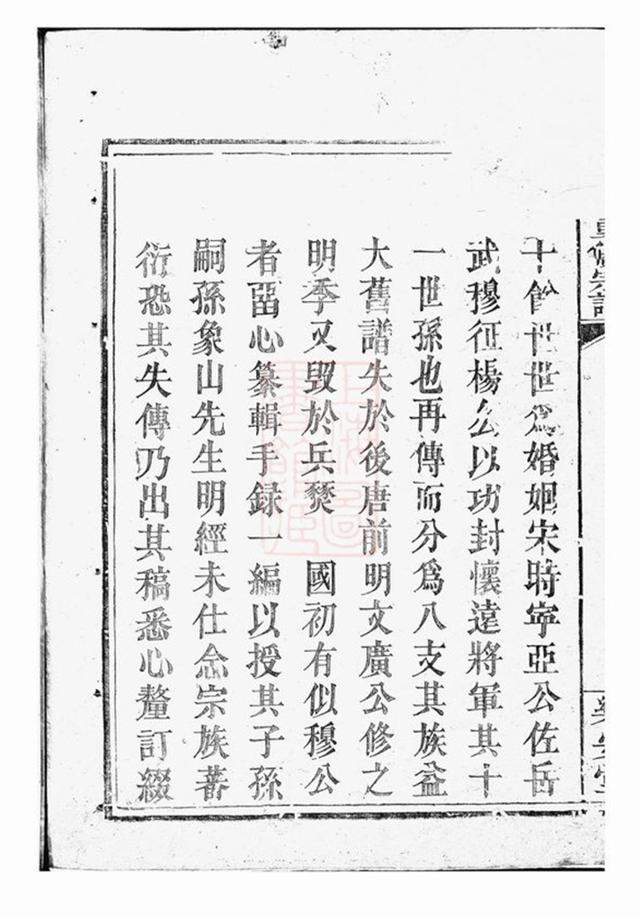 重脩宗譜
十餘世世爲婚姻宋時寧亞公佐岳
武穆征楊公以功封懷遠將軍其十
一世孫也再傳而分爲八支其族益
大舊譜失於後唐前明文廣公修之
明季又毁於兵燹 國初有似穆公
者畱心纂輯手録一編以授其子孫
嗣孫象山先生明經未仕念宗族蕃
衍恐其失傳乃出其稿悉心釐訂綴